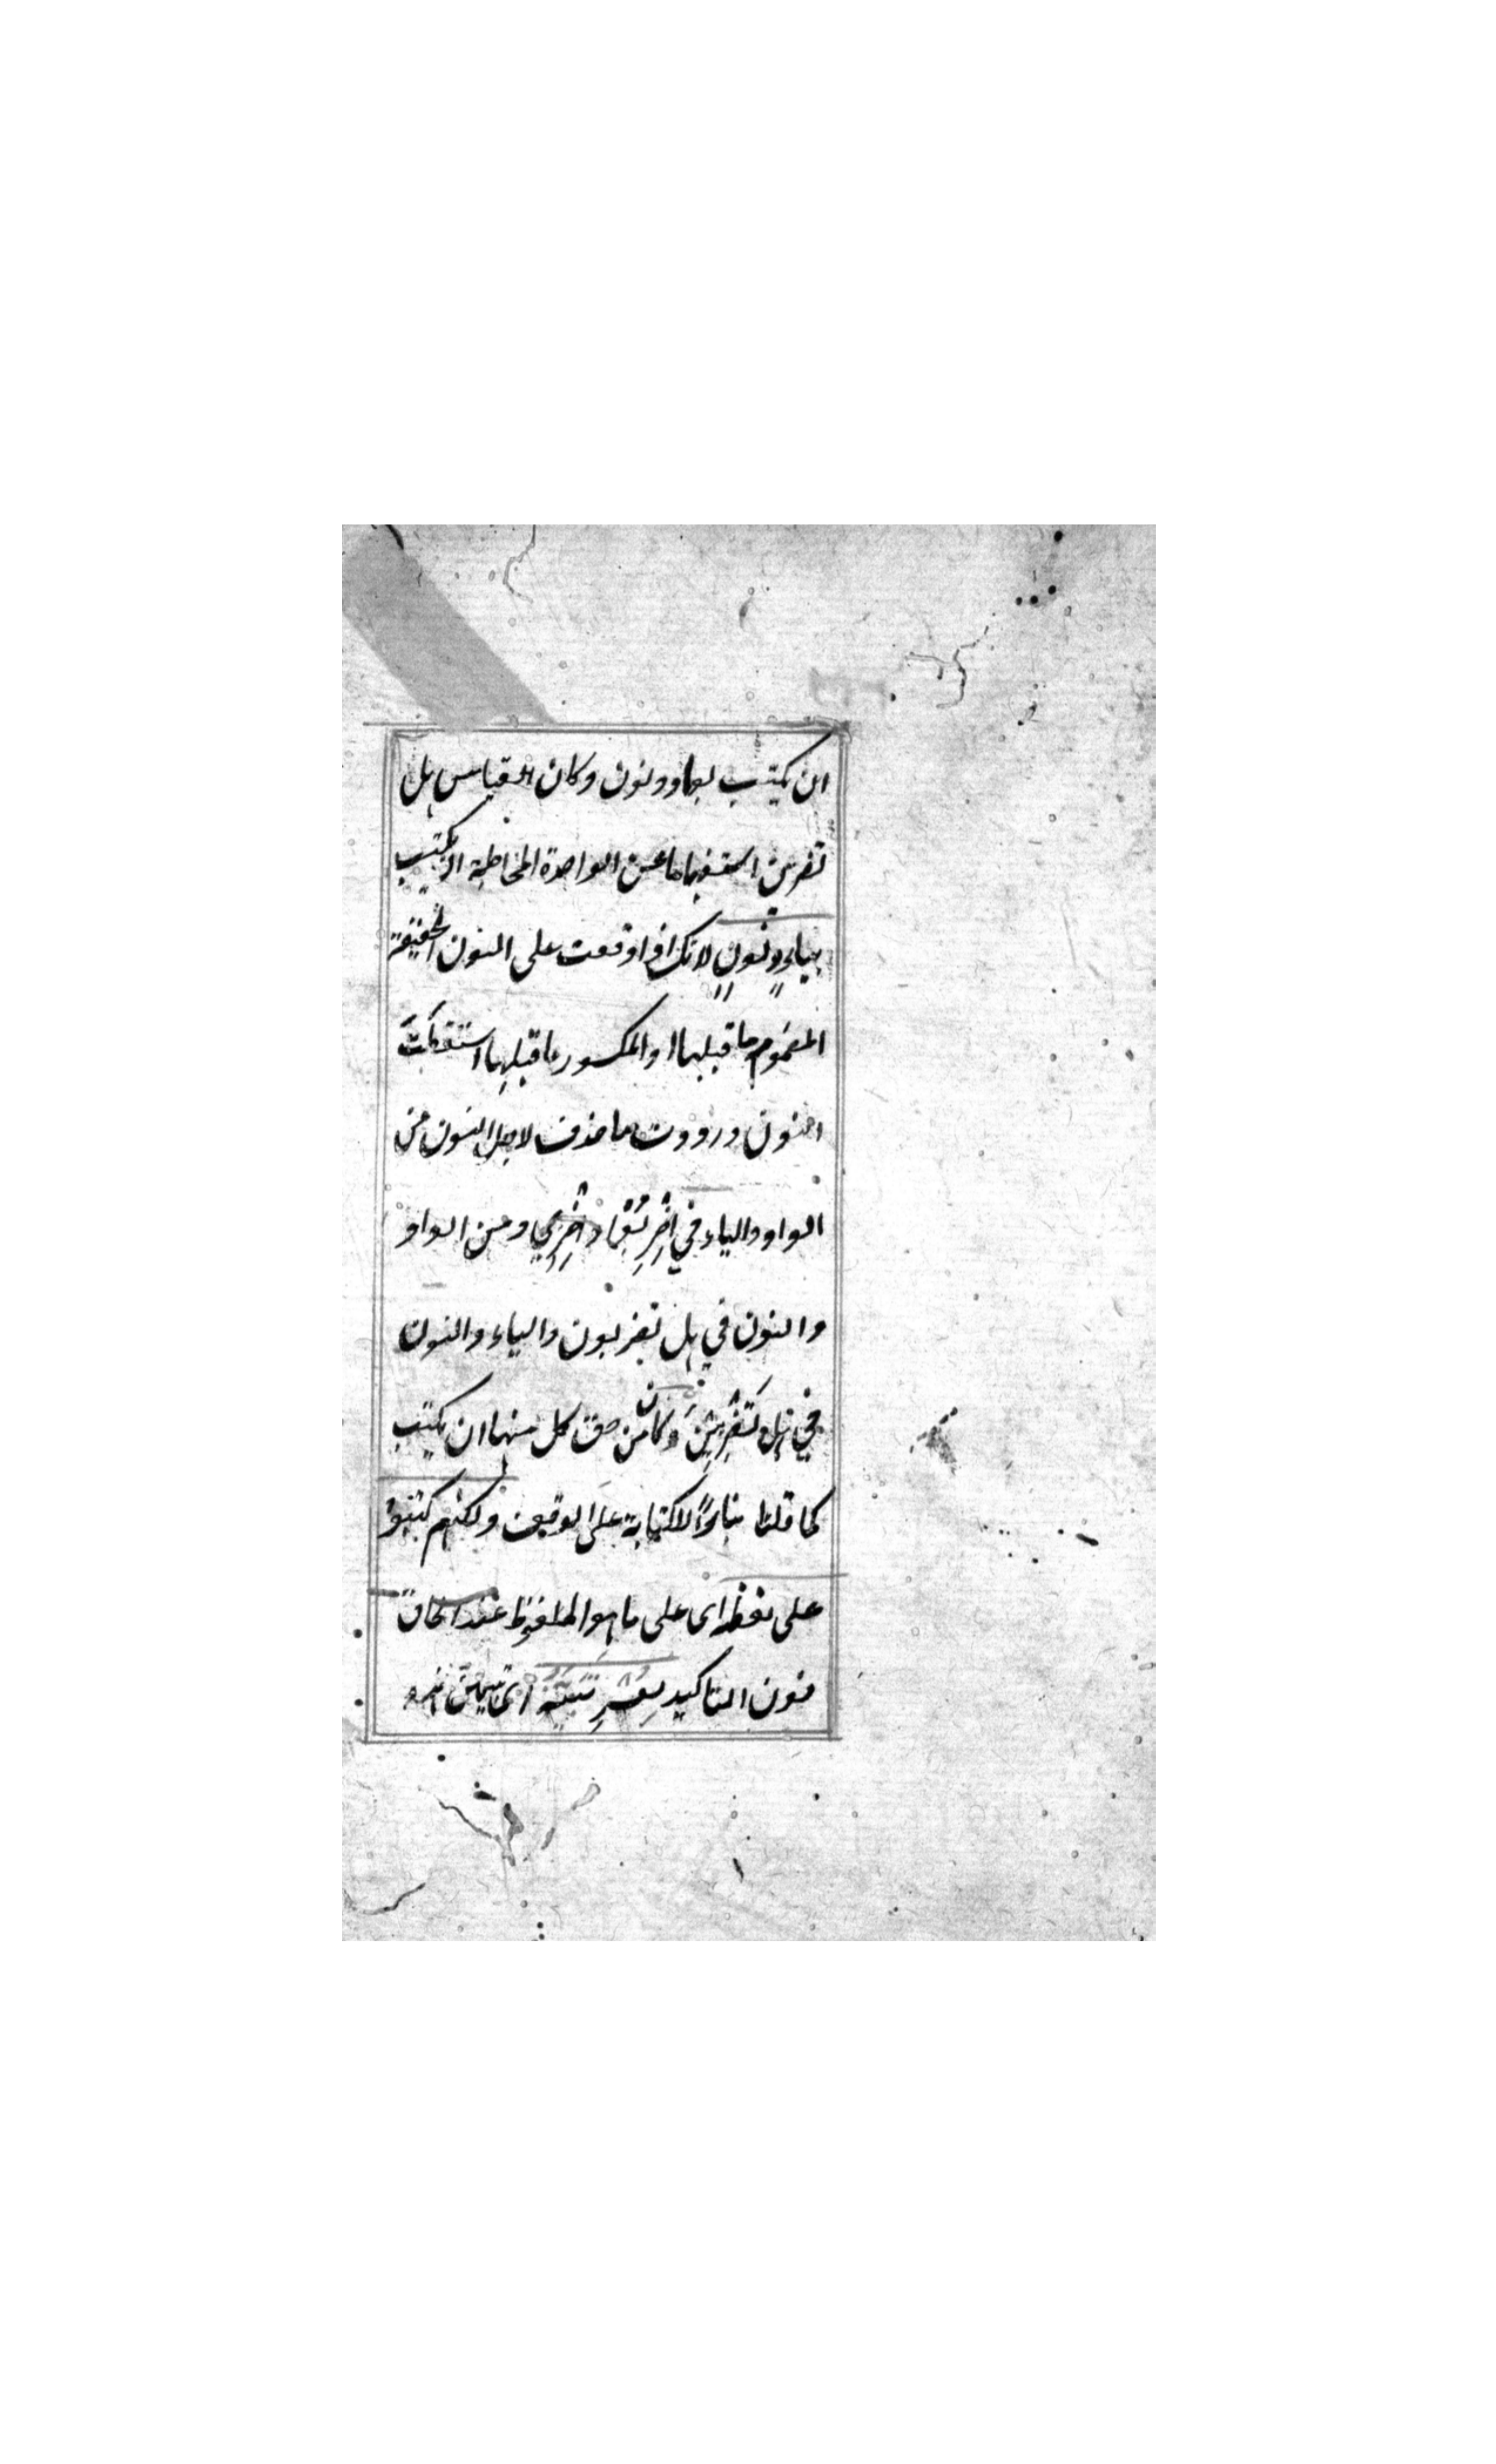 ان يكتب بواو ونون وكان القياس هل
تضربن استفهاما عن الواحدة المخاطبة ان يكتب
بياءٍ ونونٍ لانك اذا وقفت على النون الخفيفة
المضموم ما قبلها او المكسور ما قبلها اسقطتَ
النون ورددت ما حذف لاجل النون من
الواو والياء في اضربُوا واضربي ومن الواو
والنون في هل تضربون والياء والنون
في هل تضربين وكان من حق كل منها ان يكتب
كما قلنا بناءً للكتابة على الوقف ولكنهم كتبوا
على لفظه اى على ما هو الملفوظ عند الحاق
نون التاكيد لعسر تبيّنه اى